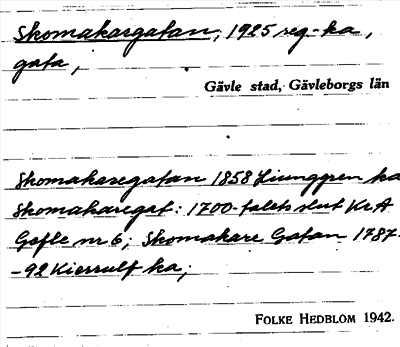 Skomakargatan, 1925 reg-ka,
gata,
Gävle stad, Gävleborgs län
Skomakaregatan 1858 Ljunggren ka
Skomakaregat: 1700-talets slut KrA
Gefle nr 6; Skomakare Gatan 1787-
-92 Kierrulf ka;
FOLKE HEDBLOM 1942.